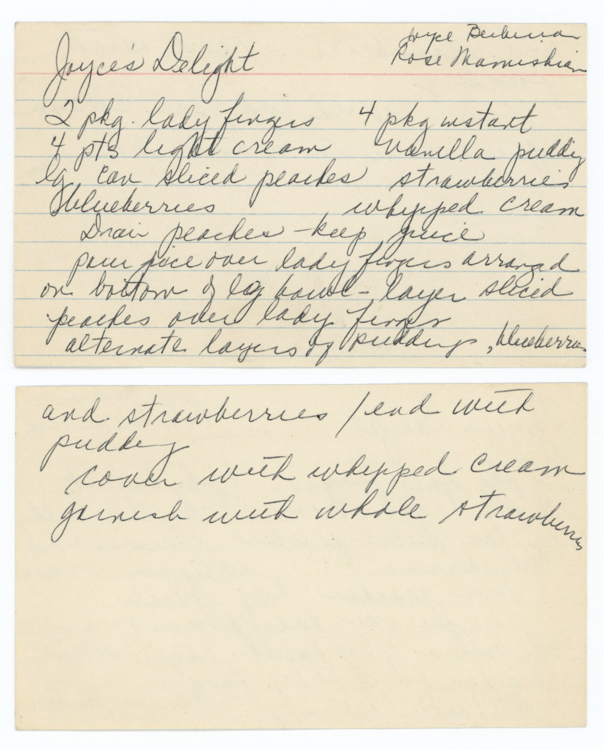 Joyce's Delight
Joyce
Rose Mamishian
2 pkg. lady fingers 4 pkg instant
4 pts light cream vanilla pudding
lg can sliced peaches strawberries
blueberries whipped cream
Drain peaches - keep juice
pour juice over lady fingers arranged
on bottom of lg bowl - layer sliced
peaches over lady fingers
alternate layers of pudding, blueberries
and strawberries / end with
pudding
cover with whipped cream
garnish with whole strawberries